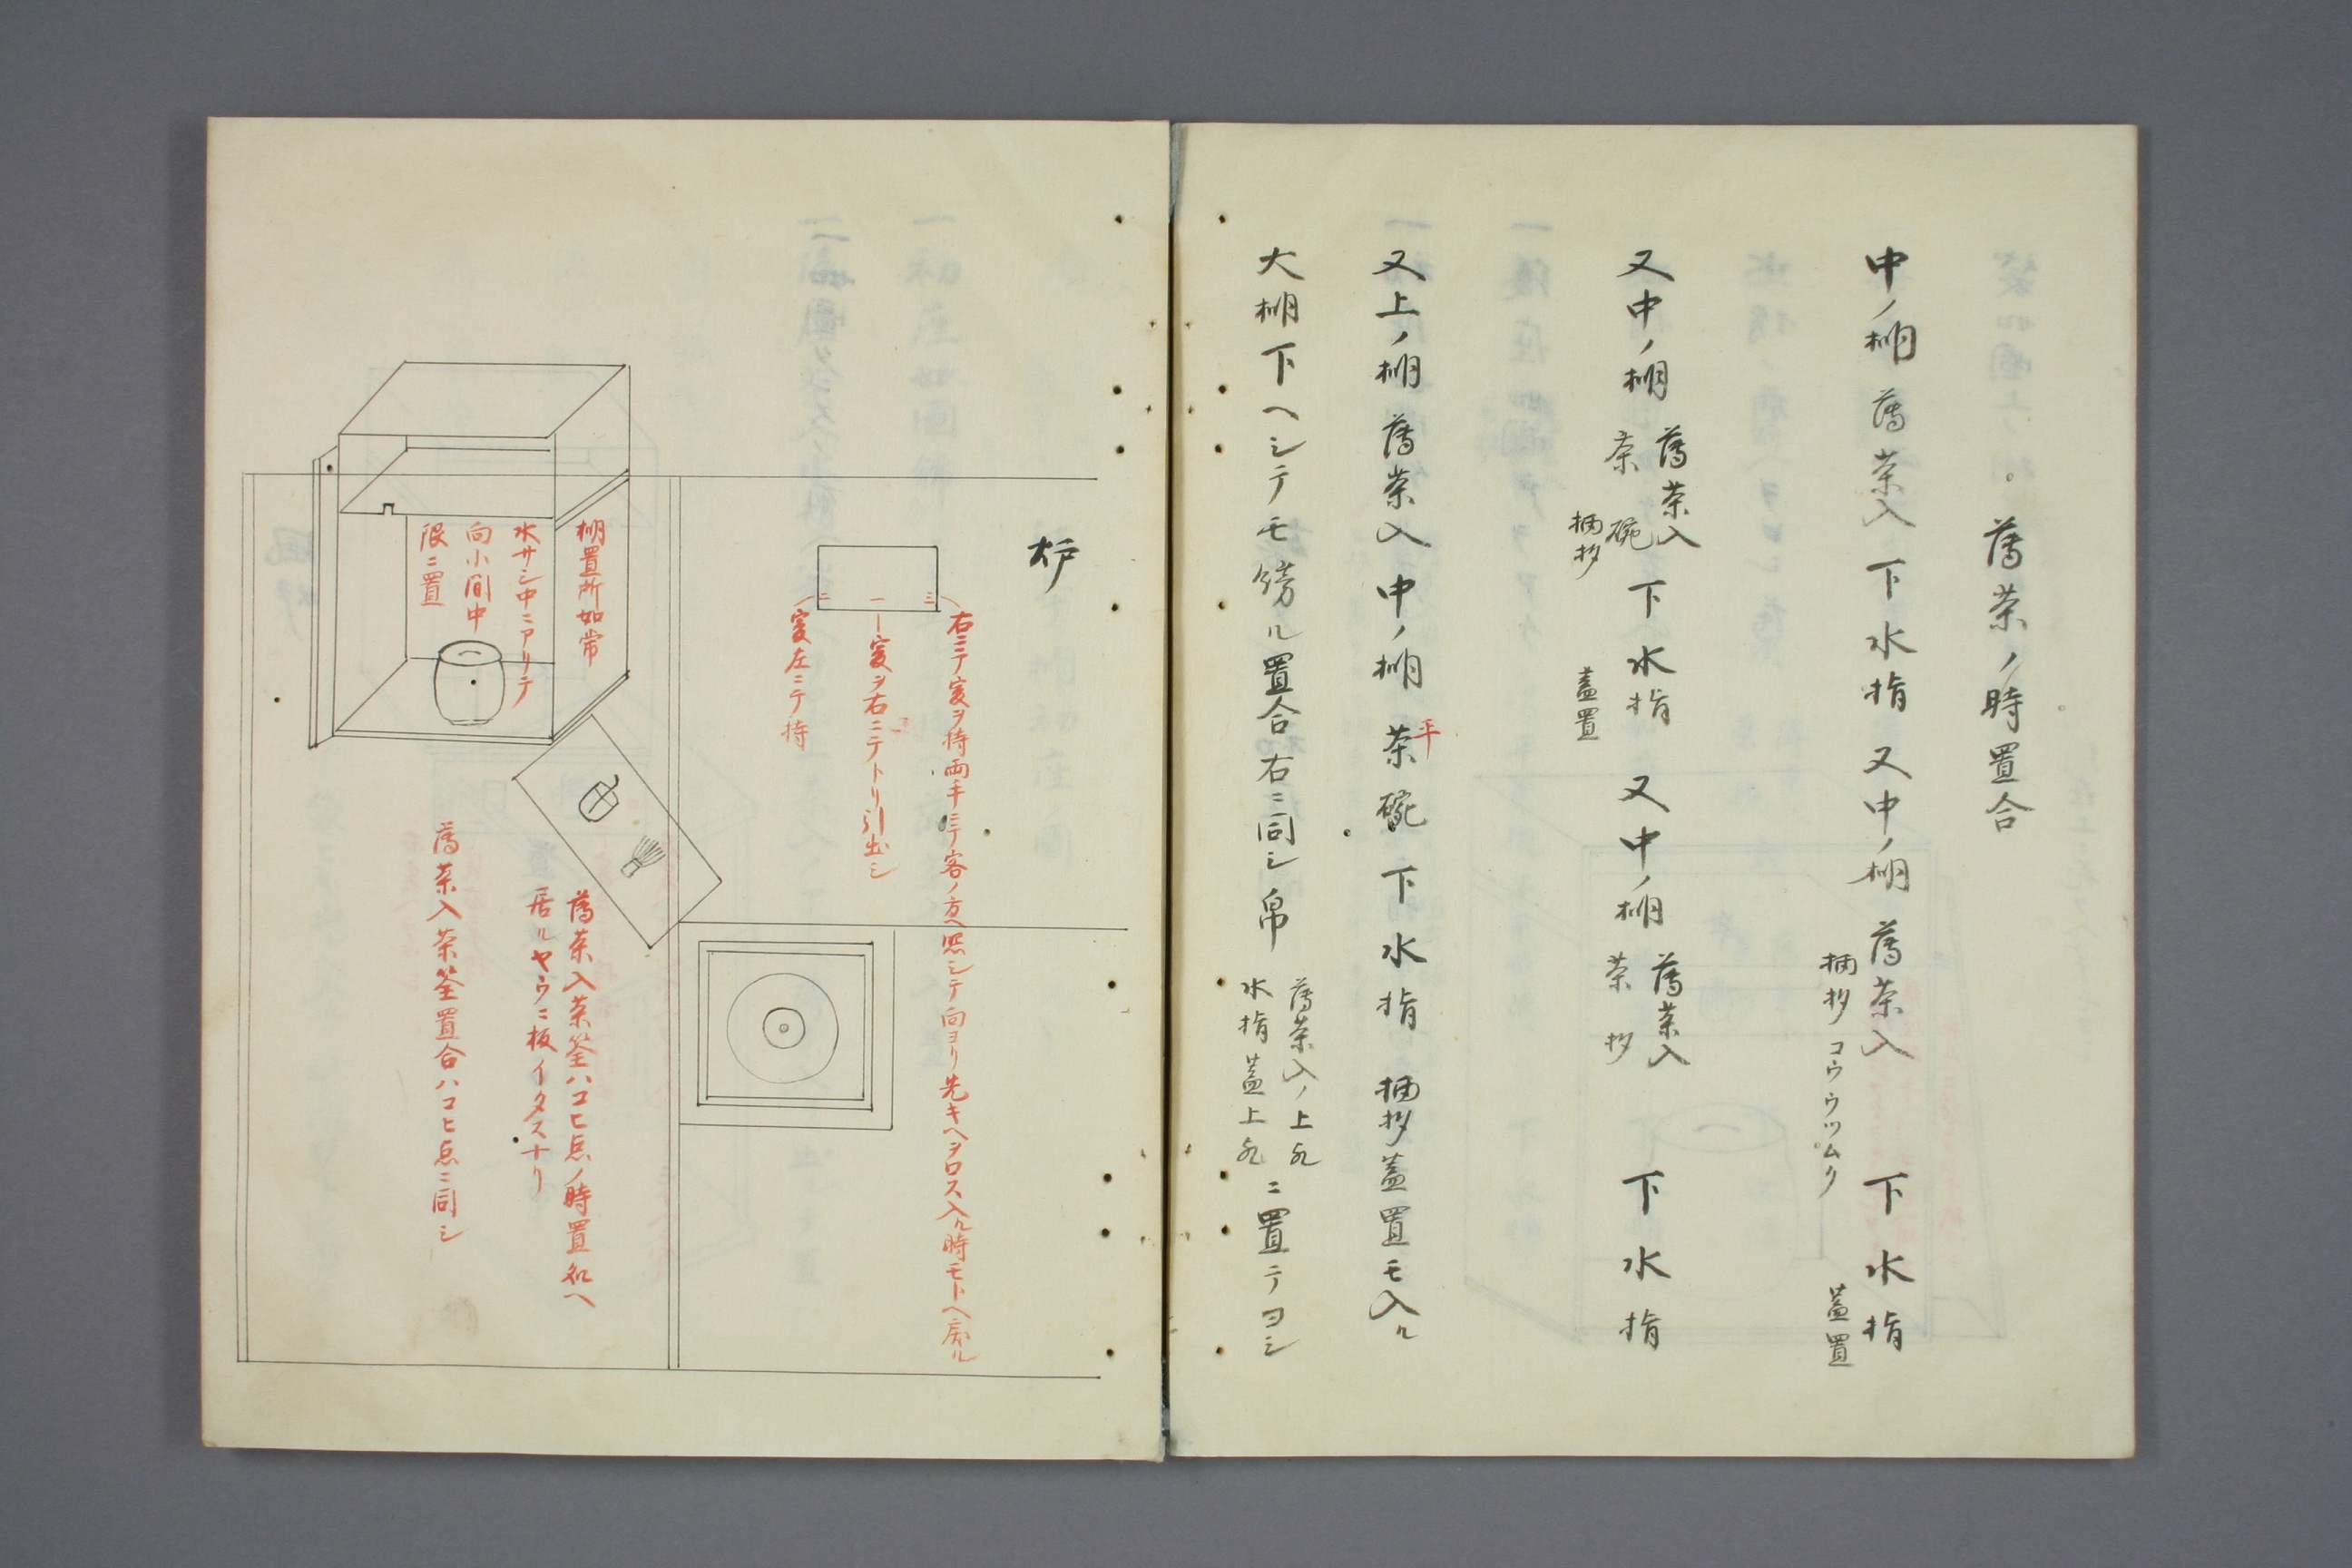 。薄茶ノ時置合
中ノ棚 薄茶入 下水指 又中ノ棚 薄茶入 下水指
柄杓コウウツムク 蓋置
又中ノ棚 薄茶入 下水指 又中ノ棚 薄茶入 下水指
茶碗 茶杓
柄杓 蓋置
又上ノ棚 薄茶入 中ノ棚 茶碗 下水指 柄杓蓋置モ入ル
平
大棚下ヘシテモ傍ル置合右ニ同シ帛
薄茶入ノ上
水指蓋上
ニ置テヨシ
炉
三
一
二
右ニテ爰ヲ持両キニテ客ノ方ヘ照シテ向ヨリ先キヘヲロス入ル時モトヘ戻ル
爰ヲ右ニテトリ引出シ
爰左ニテ持
棚置所如常
水サシ中ニアリテ
向小間中
限ニ置
薄茶入茶筌ハコヒ点ノ時置処ヘ
居ルヤウニ板イタスナリ
薄茶入茶筌置合ハコヒ点ニ同シ